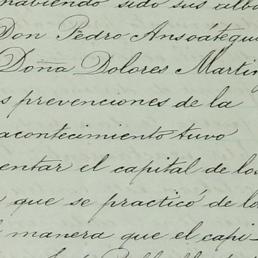 habiendo sido sus alba
Don Pedro Ansoátegui
Doña Dolores Martin
s prevenciones de la
acontecimiento tuvo
entar el capital de los
que se practicó de lo
manera que el capi-